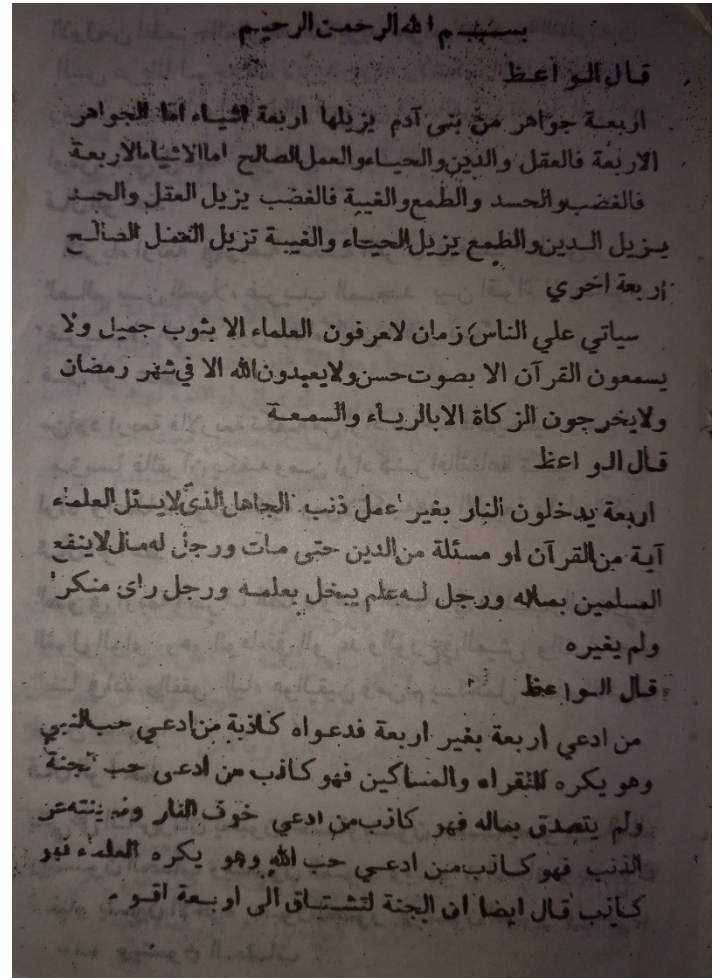 بسم الله الرحمن الرحيم
قال الواعظ
اربعة جواهر من بني آدم يزيلها اربعة اشياء اما الجواهر
الاربعة فالعقل والدين والحياء والعمل الصالح اما الاشياء الاربعة
فالغضب والحسد والطمع والغيبة فالغضب يزيل العقل والحسد
يزيل الدين والطمع يزيل الحياء والغيبة تزيل العمل الصالح
اربعة اخري
سياتي علي الناس زمان لاعرفون العلماء الا بثوب جميل ولا
يسمعون القرآن الا بصوت حسن ولايعبدون الله الا في شهر رمضان
ولايخرجون الزكاة الابالرياء والسمعة
قال الواعظ
اربعة يدخلون النار بغير عمل ذنب الجاهل الذي لايسئل العلماء
آية من القرآن او مسئلة من الدين حتى مات ورجل له مال لاينفع
المسلمين بماله ورجل له علم يبخل بعلمه ورجل راى منكرا
ولم يغيره
قال الواعظ
من ادعي اربعة بغير اربعة فدعواه كاذبة من ادعي حب النبي
وهو يكره للفقراء والمساكين فهو كاذب من ادعى حب الجنة
ولم يتصدق بماله فهو كاذب من ادعي خوف النار ولم ينته عن
الذنب فهو كاذب من ادعي حب الله وهو يكره العلماء فهو
كاذب قال ايضا ان الجنة لتشتاق الى اربعة